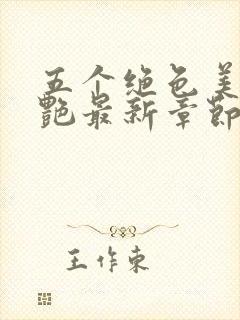 五个绝色美
艳最新章节
王作东